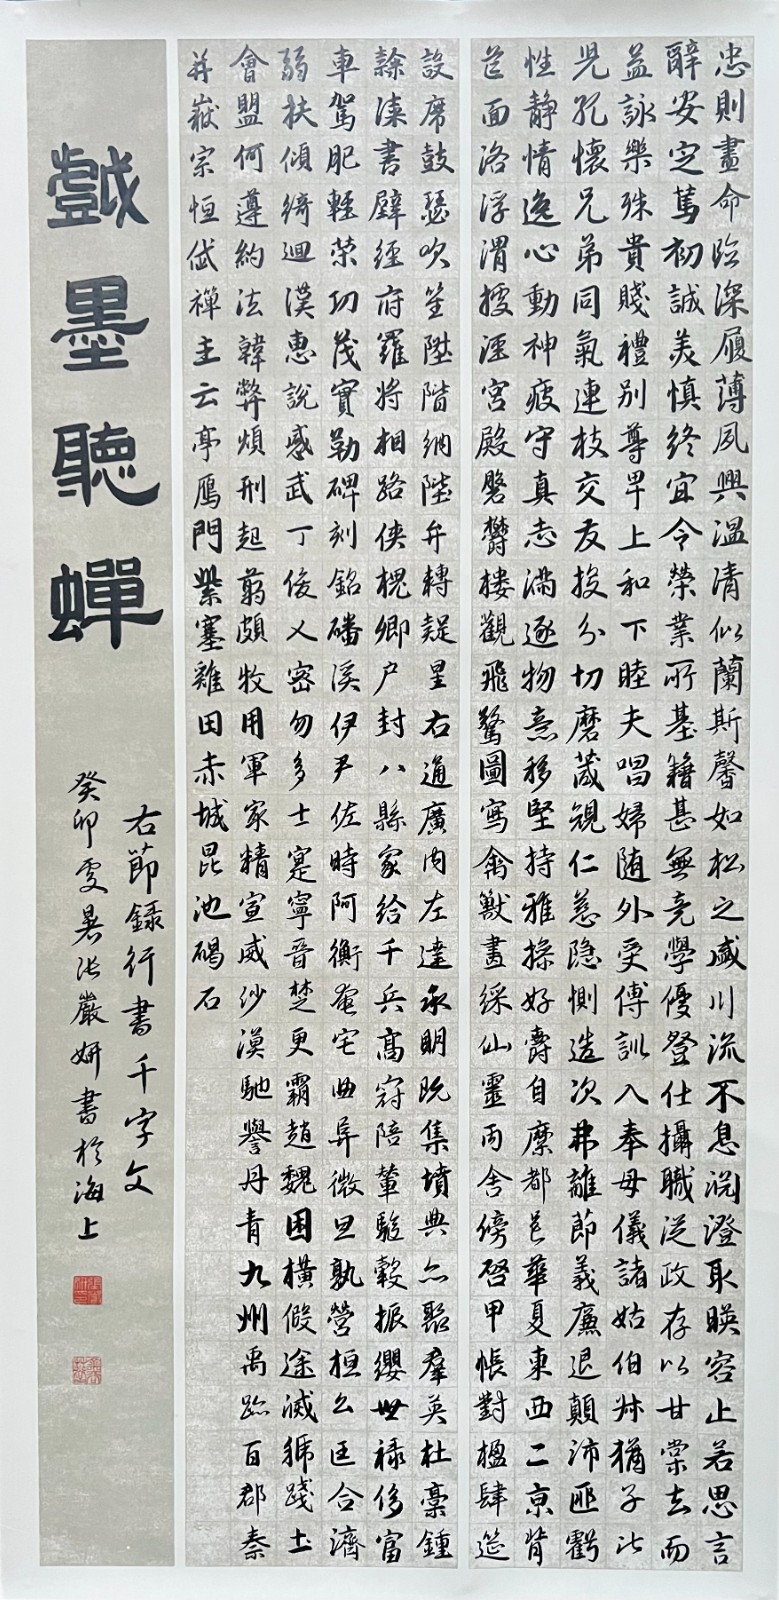 忠則盡命臨深履薄夙興溫凊似蘭斯馨如松之盛川流不息淵澄取暎容止若思言
辭安定篤初誠美慎終宜令榮業所基籍甚無竟學優登仕攝職從政存以甘棠去而
益詠樂殊貴賤禮別尊卑上和下睦夫唱婦隨外受傅訓入奉母儀諸姑伯叔猶子比
兒孔懷兄弟同氣連枝交友投分切磨箴規仁慈隱惻造次弗離節義廉退顛沛匪虧
性靜情逸心動神疲守真志滿逐物意移堅持雅操好爵自縻都邑華夏東西二京背
芒面洛浮渭據涇宮殿磐鬱樓觀飛驚圖寫禽獸畫綵仙靈丙舍傍啓甲帳對楹肆筵
設席鼓瑟吹笙陞階納陛弁轉疑星右通廣內左達承明既集墳典亦聚羣英杜稾鍾
隸漆書壁經府羅將相路俠槐卿戶封八縣家給千兵高冠陪輦驅轂振纓世祿侈富
車駕肥輕策功茂實勒碑刻銘磻溪伊尹佐時阿衡奄宅曲阜微旦孰營桓公匡合濟
弱扶傾綺迴漢惠說感武丁俊乂密勿多士寔寧晉楚更霸趙魏困橫假途滅虢踐土
會盟何遵約法韓弊煩刑起翦頗牧用軍最精宣威沙漠馳譽丹青九州禹跡百郡秦
并嶽宗恒岱禪主云亭鴈門紫塞雞田赤城昆池碣石
戲墨聽蟬
右節錄行書千字文
癸卯處暑張嚴妍書於海上